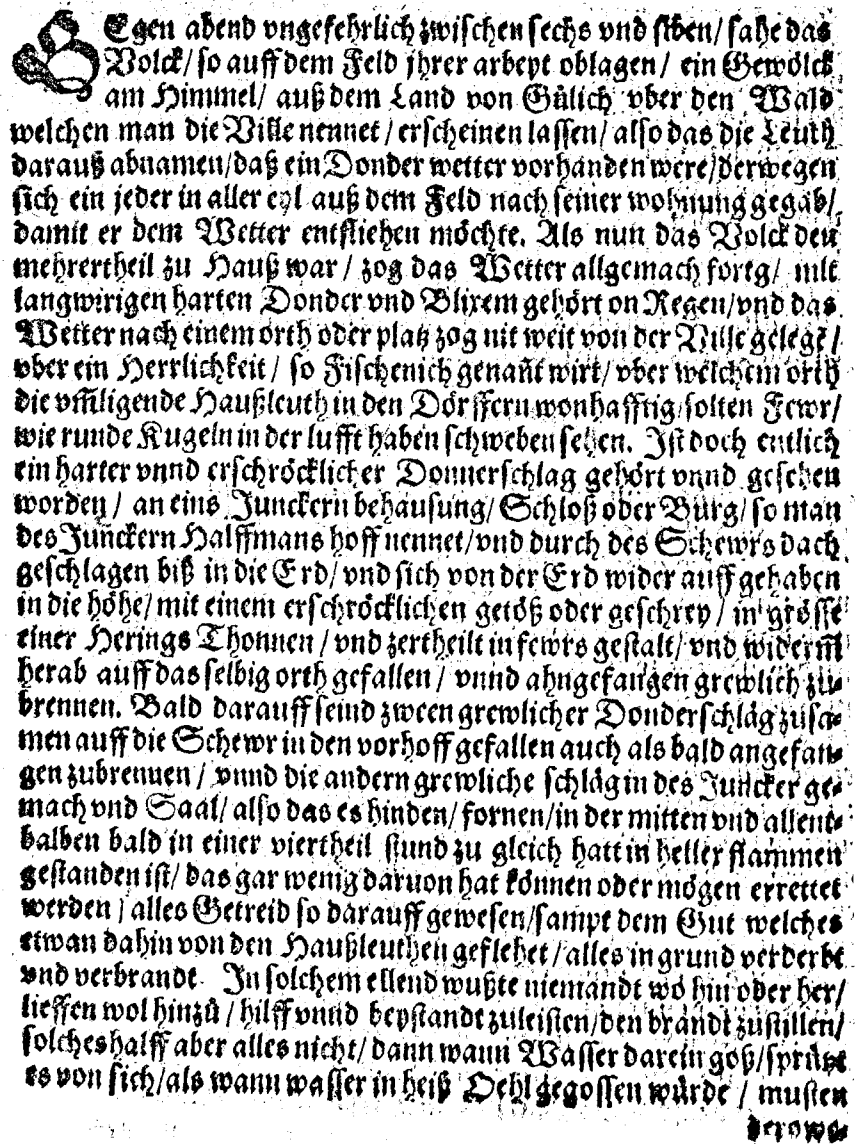 GEgen abend vngefehrlich zwischen sechs vnd siben/ sahe das
Volck/ so auff dem Feld jhrer arbeyt oblagen/ ein Gewölck
am Himmel/ auß dem Land von Gülich vber den Wald
welchen man die Ville nennet/ erscheinen lassen/ also das die Leuth
darauß abnamen/ daß ein Donder wetter vorhanden were/ derwegen
sich ein jeder in aller eyl auß dem Feld nach seiner wohnung gegab/
damit er dem Wetter entfliehen möchte. Als nun das Volck den
mehrertheil zu Hauß war/ zog das Wetter allgemach fortg/ mit
langwirigen harten Donder vnd Blixem gehört on Regen/ vnd das
Wetter nach einem orth oder platz zog nit weit von der Ville gelegẽ/
vber ein Herrlichkeit/ so Fischenich genañt wirt/ vber welchem orth
die vm̃ligende Haußleuth in den Dörffern wonhafftig/ solten Fewr/
wie runde Kugeln in der lufft haben schweben sehen. Ist doch entlich
ein harter vnnd erschröcklicher Donnerschlag gehört vnnd gesehen
worden/ an eins Junckern behausung/ Schloß oder Burg/ so man
des Junckern Halffmans hoff nennet/ vnd durch des Schewrs dach
geschlagen biß in die Erd/ vnd sich von der Erd wider auff gehaben
in die höhe/ mit einem erschröcklichen getöß oder geschrey/ in grösse
einer Herings Thonnen/ vnd zertheilt in fewrs gestalt/ vnd widerm̃
herab auff das selbig orth gefallen/ vnnd ahngefangen grewlich zu-
brennen. Bald darauff seind zween grewlicher Donderschläg zusa-
men auff die Schewr in den vorhoff gefallen auch als bald angefan-
gen zubrennen/ vnnd die andern grewliche schläg in des Juncker ge-
mach vnd Saal/ also das es hinden/ fornen/ in der mitten vnd allent-
halben bald in einer viertheil stund zu gleich hatt in heller flammen
gestanden ist/ das gar wenig daruon hat können oder mögen errettet
werden/ alles Getreid so darauff gewesen/ sampt dem Gut welches
etwan dahin von den Haußleuthen geflehet/ alles in grund verderbt
vnd verbrandt. In solchem ellend wußte niemandt wo hin oder her/
lieffen wol hinzů/ hilff vnnd beystandt zuleisten/ den brandt zustillen/
solches halff aber alles nicht/ dann wann Wasser darein goß/ sprützt
es von sich/ als wann wasser in heiß Oehl gegossen würde/ musten
derowe-